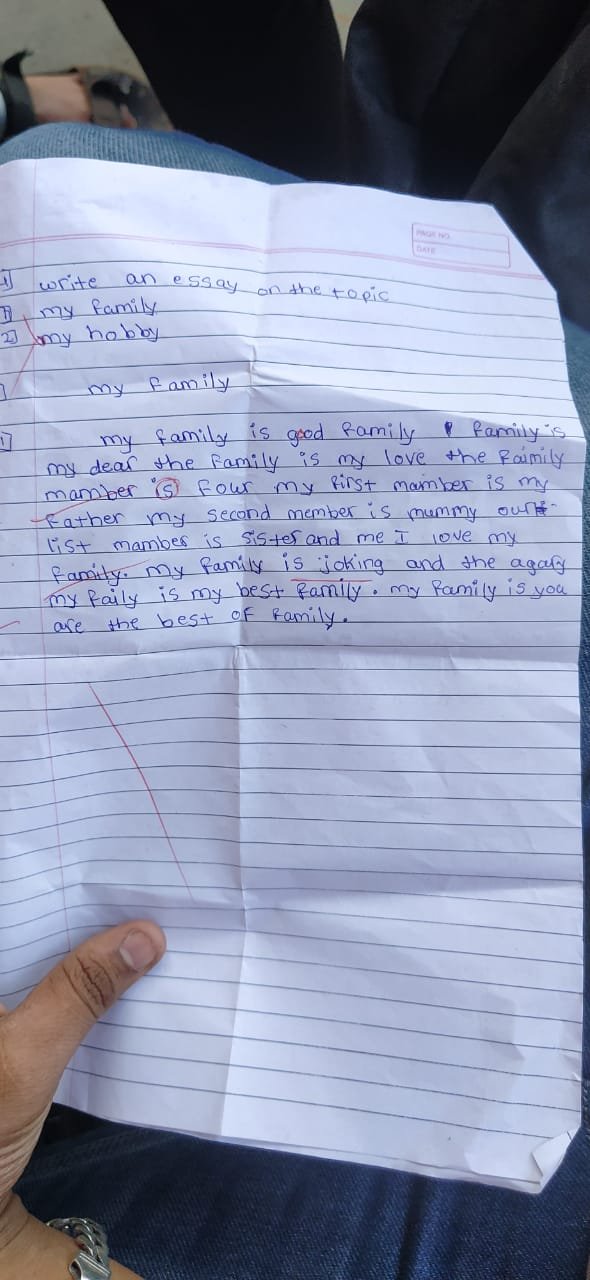 PAGE NO.
DATE
1] write an essay on the topic
1] my family
2] my hobby
my family
my family is good family family is
my dear the family is my love the faimily
mamber is four my first mamber is my
father my second member is mummy
list mamber is sister and me I love my
family. my family is joking and the
my faily is my best family. my family is you
are the best of family.